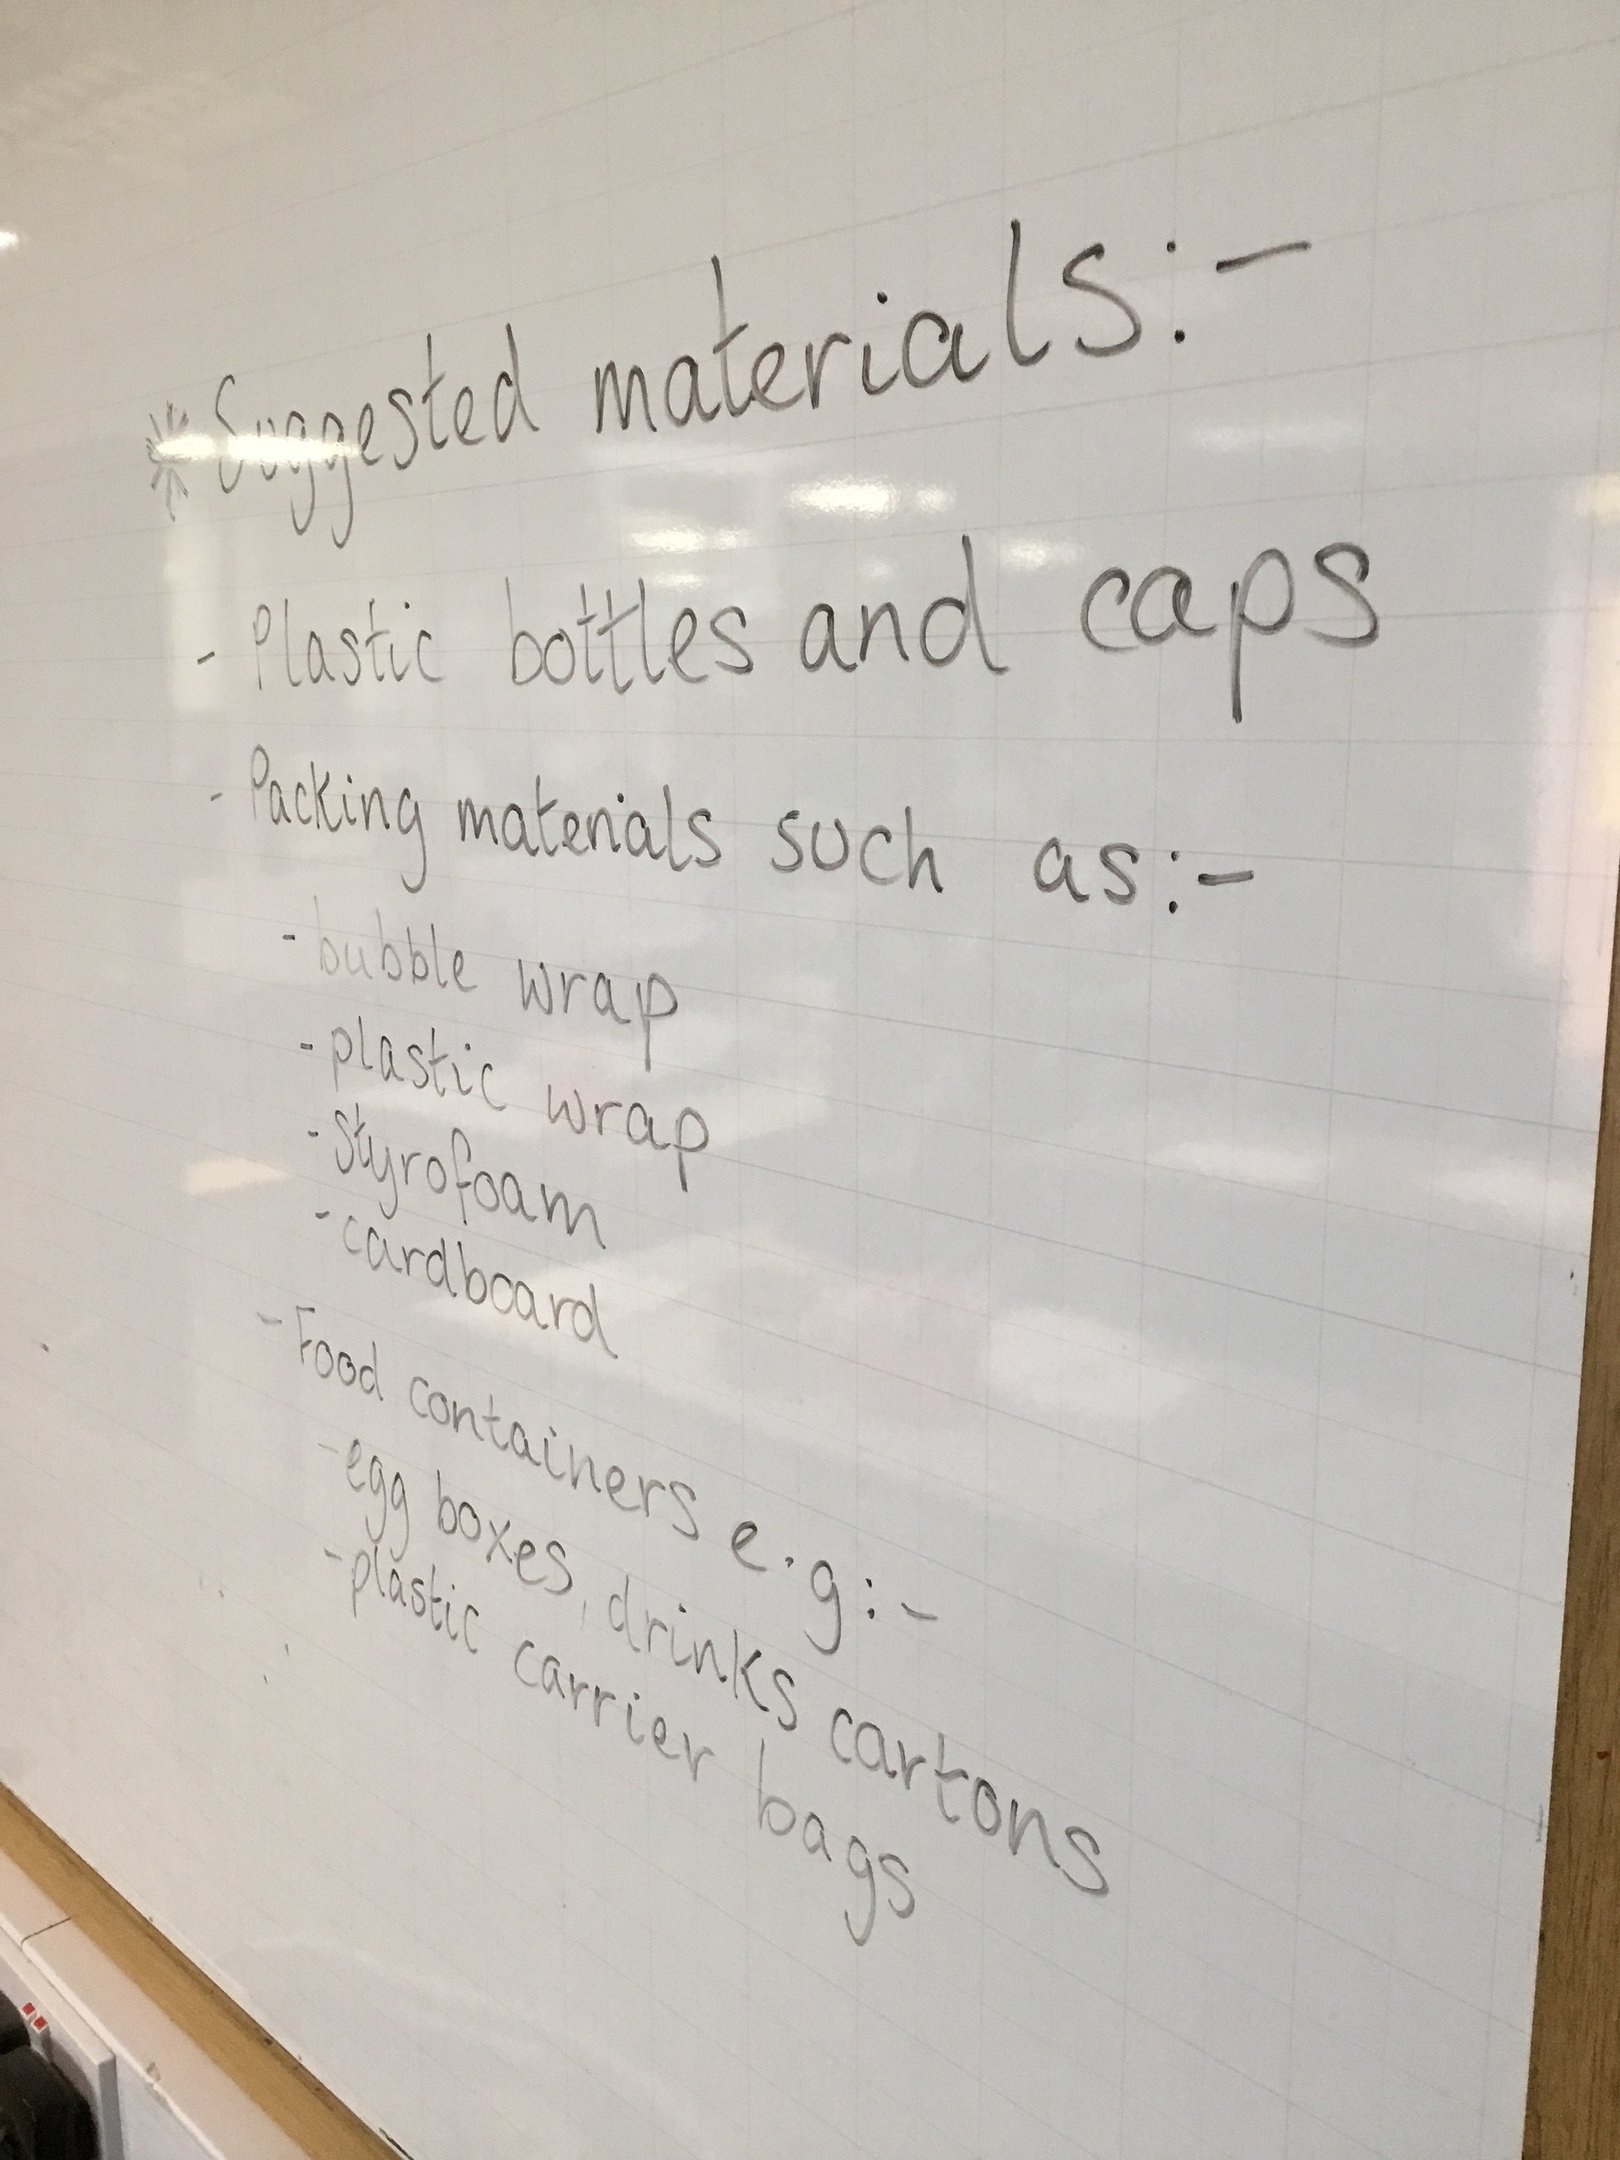 * Suggested materials:-
- Plastic bottles and caps
- Packing materials such as:-
- bubble wrap
- plastic wrap
- Styrofoam
- cardboard
- Food containers e.g:-
- egg boxes, drinks cartons
- plastic carrier bags